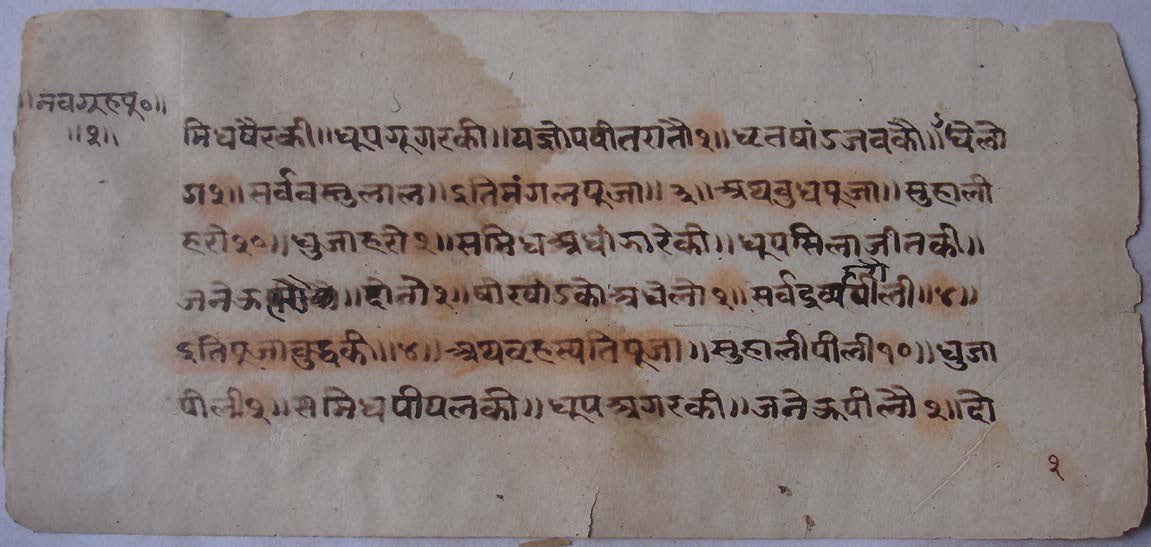 ॥नवगृहपू०॥
॥१॥
मिधषैरकी॥धूपगूगरकी॥यज्ञोपवीतरातौ१॥घृतषांडजवकौ॥धेलो
ग१॥सर्ववस्तुलाल॥इतिमंगलपूजा॥३॥अथबुधपूजा॥सुहाली
हरी१०॥धुजाहरी१॥समिधअधांझारेकी॥धूपसिलाजीतकी॥
जनेऊ॥दोनौ१॥षीरषांडको अधेलो१॥सर्वद्रव्यहरी॥४॥
इतिपूजाबुद्धकी॥४॥अथवृहस्पतिपूजा॥सुहालीपीली१०॥धुजा
पीली१॥समिधपीपलकी॥धूपअगरकी॥जनेऊपीलौ१॥दो
१